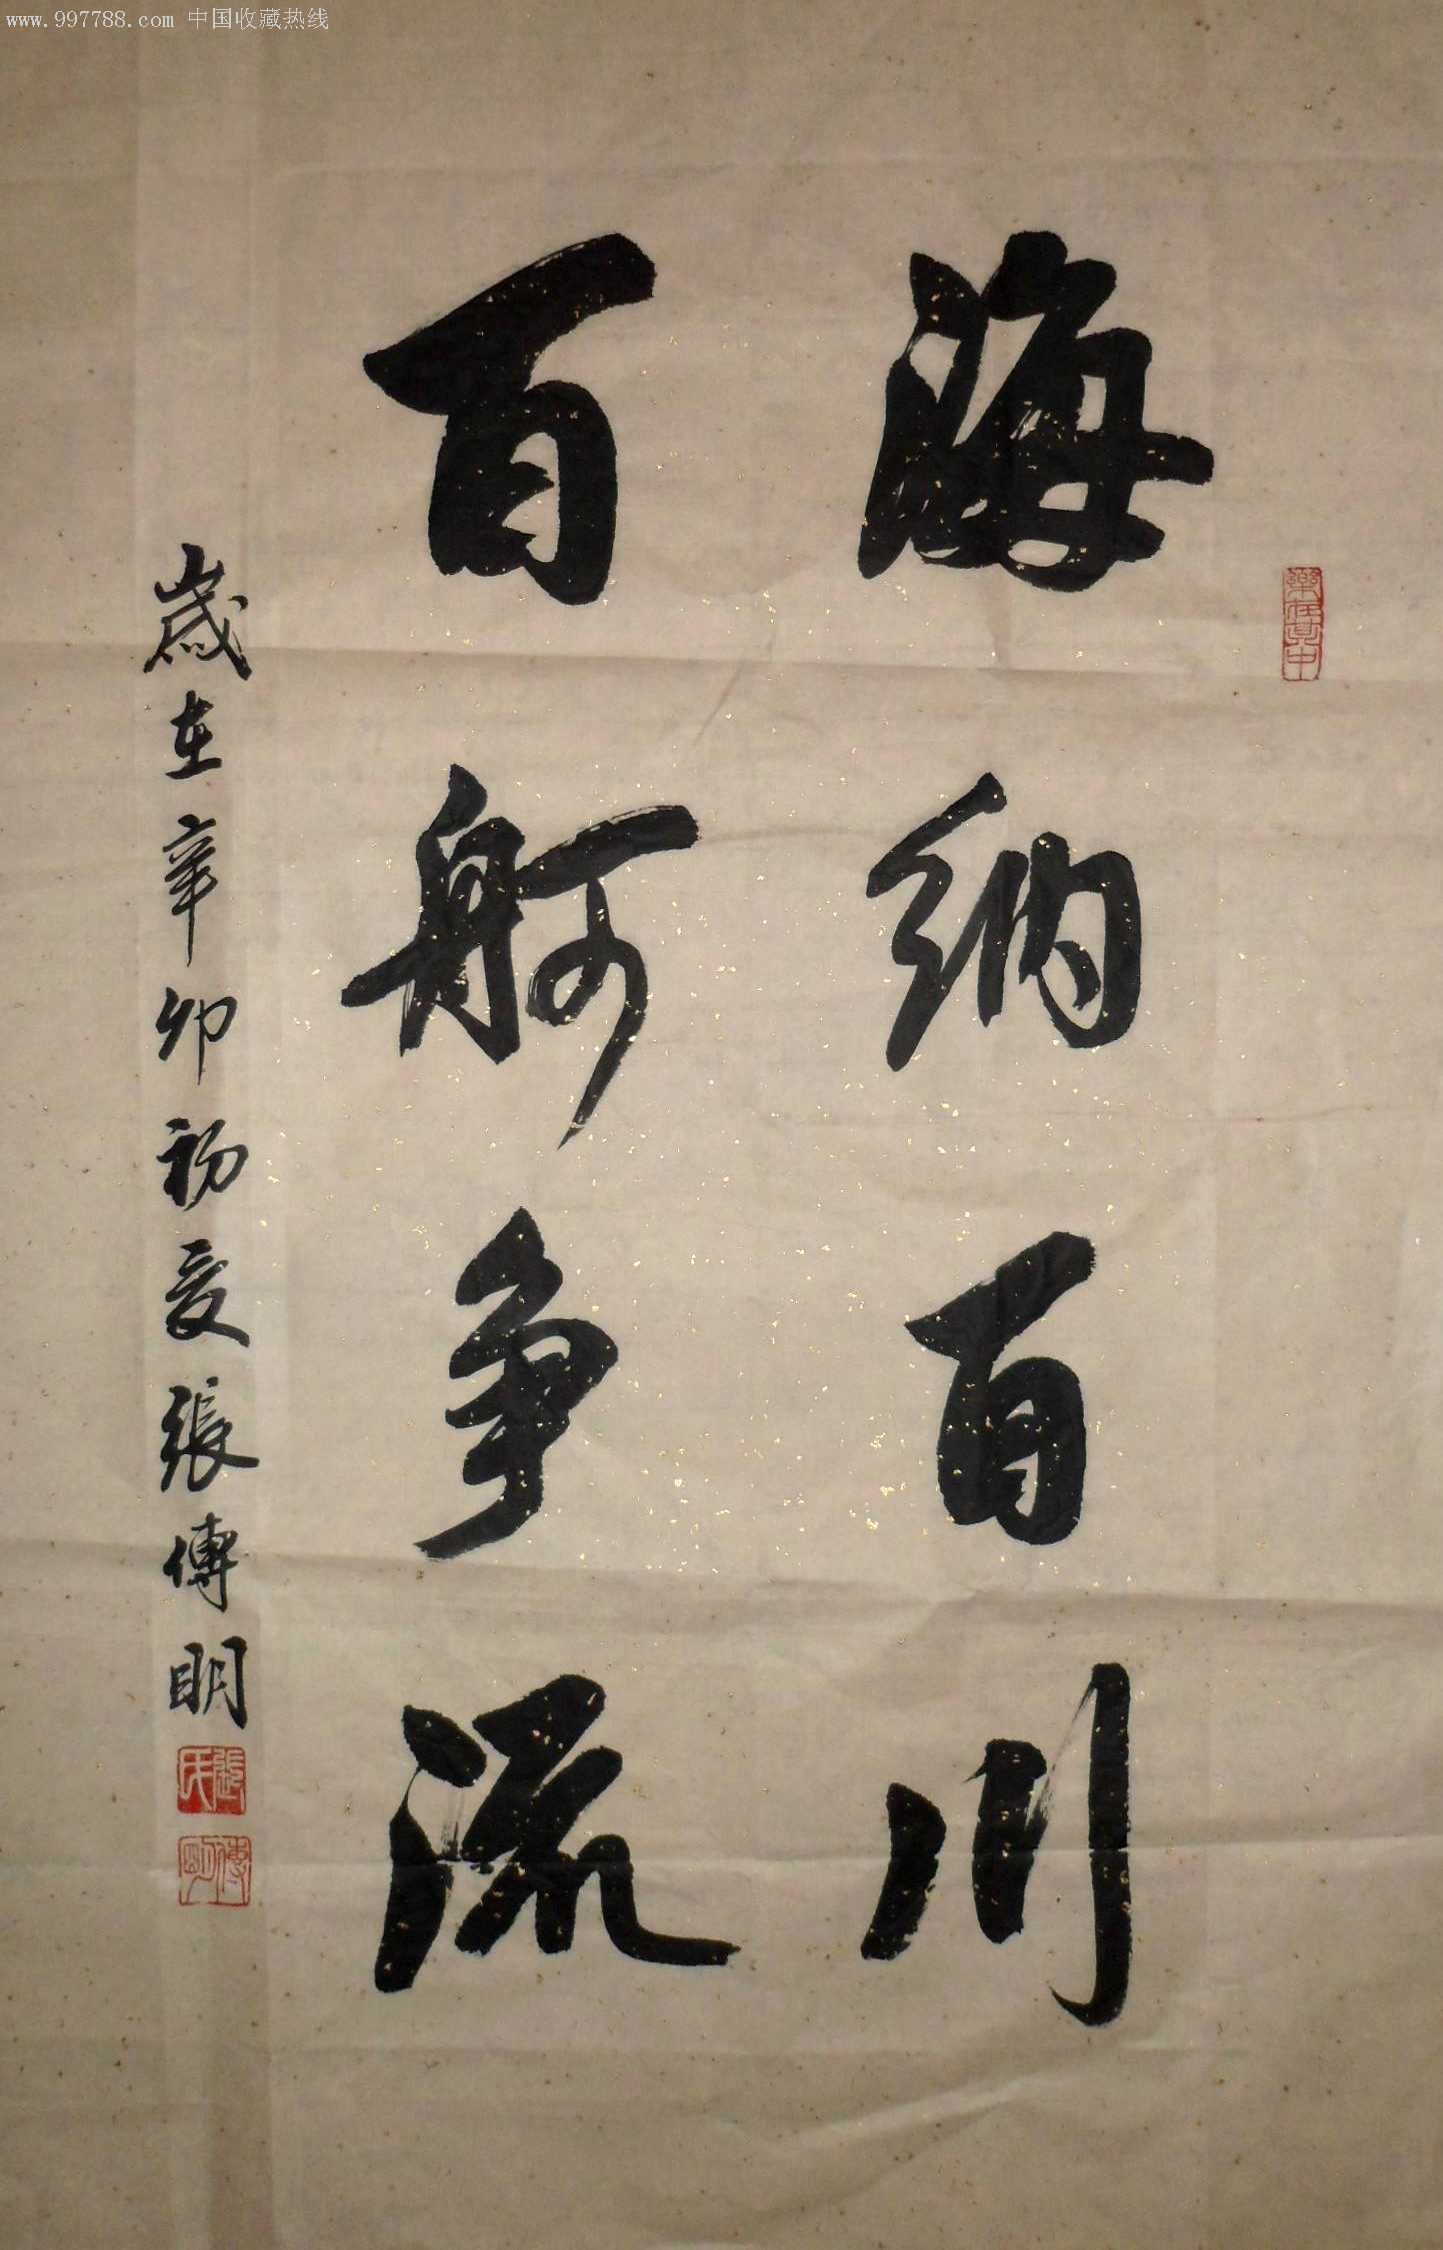 www.997788.com 中国收藏热线
海纳百川
百舸争流
歲在辛卯初夏張傳明
樂在其中
張氏
傳明